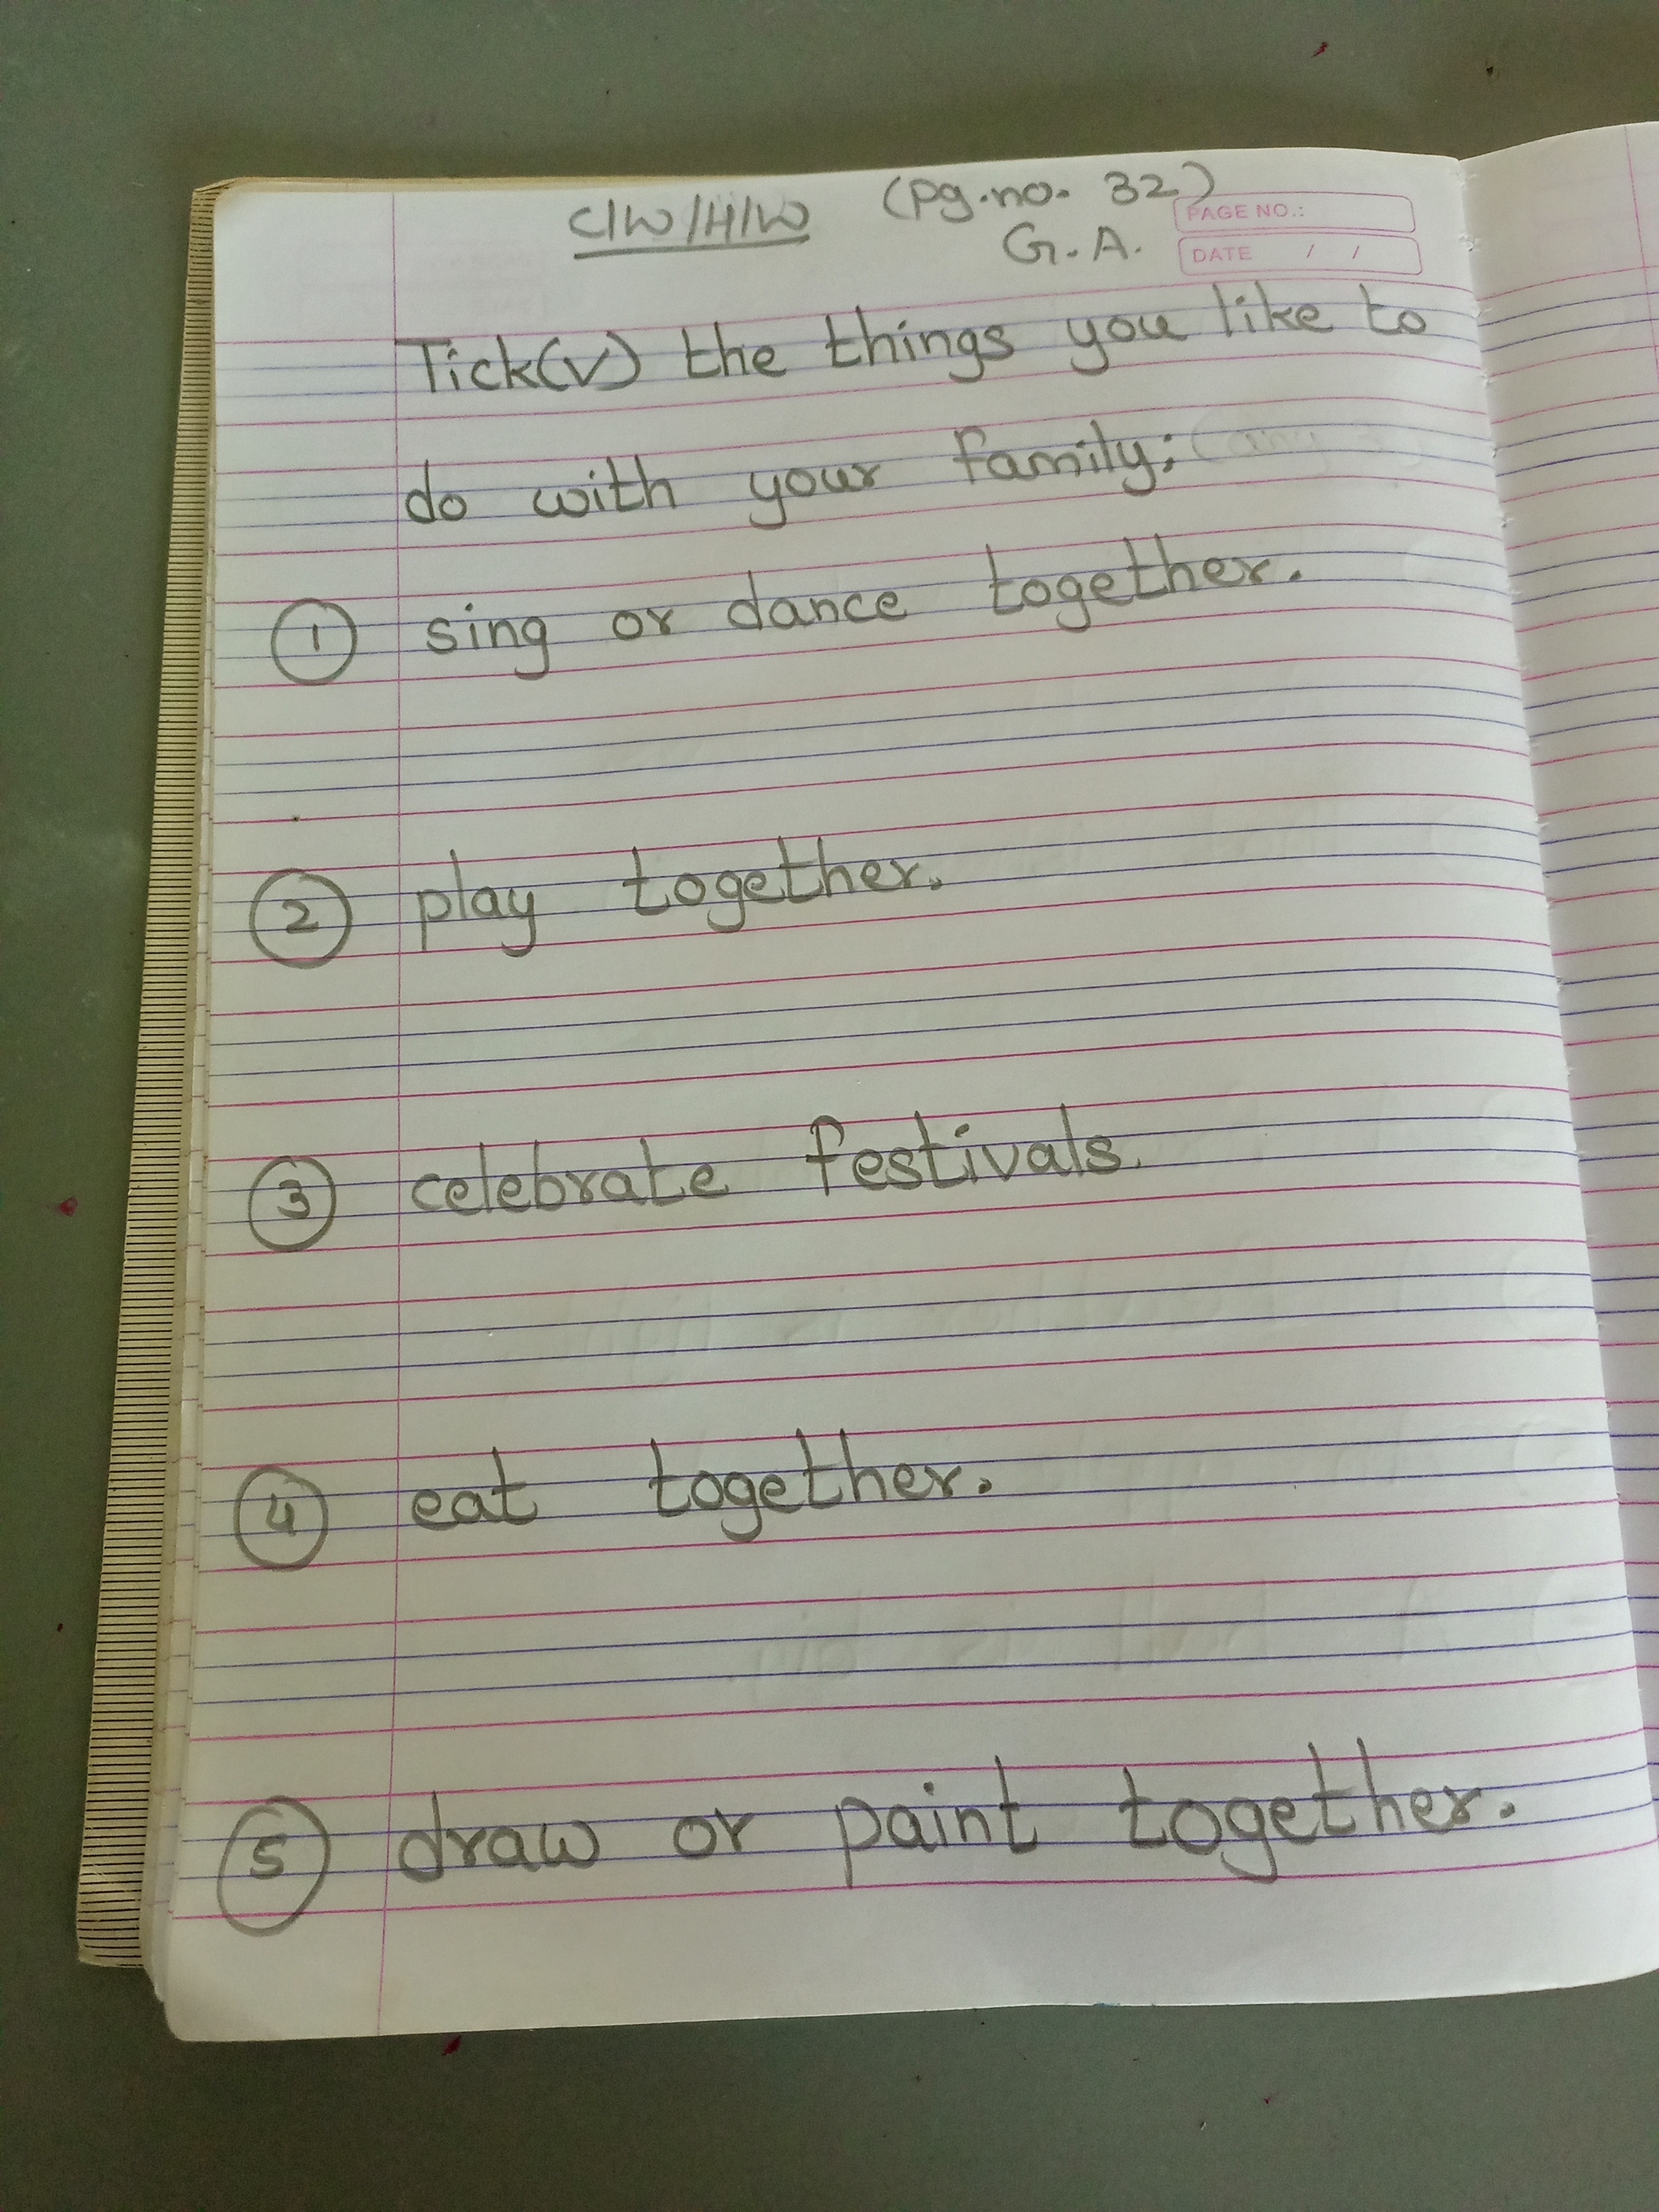 C/W/H/W (pg.no. 32)
PAGE NO.:
G.A.
DATE / /
Tick(✓) the things you like to
do with your family; (any
① sing or dance together.
② play together.
③ celebrate festivals.
④ eat together.
⑤ draw or paint together.